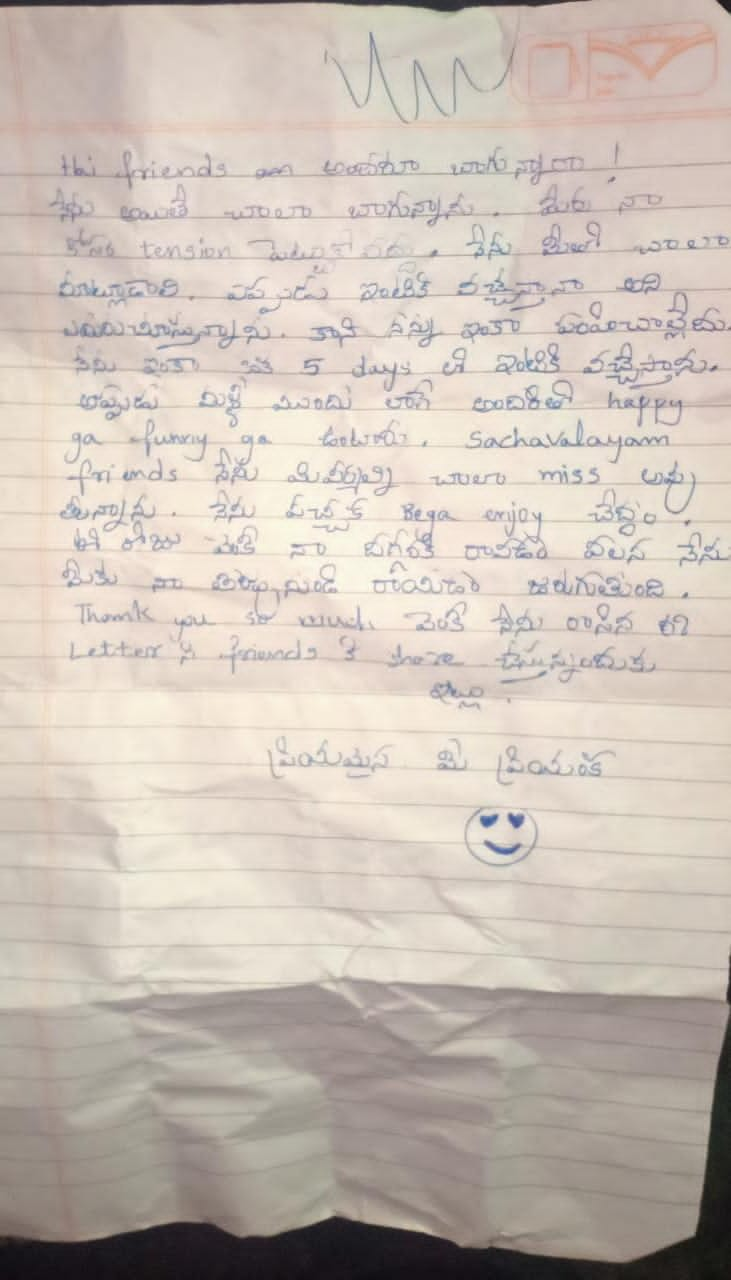 Hai friends am అందరూ బాగున్నారా !
నేను అయితే చాలా బాగున్నాను. మీరు నా
కోసం tension పెట్టుకోవద్దు. నేను మీతో చాలా
మాట్లాడాలి. ఎప్పుడు ఇంటికి వచ్చేస్తానా అని
ఎదురుచూస్తున్నాను. కాని నన్ను ఇంకా పంపించాల్లేదు.
నేను ఇంకా 5 days లో ఇంటికి వచ్చేస్తాను.
అప్పుడు మళ్ళీ ముందు లాగే అందరితో happy
ga funny ga ఉంటాను. Sachavalayam
friends నేను మిమ్మల్ని చాలా miss అవు
తున్నాను. నేను వచ్చాక Bega enjoy చేద్దాం.
ఈ రోజు వెంకీ నా దగ్గరకి రావడం వలన నేను
మీకు నా తరుపునుండి రాయడం జరుగుతుంది.
Thank you so much వెంకీ నేను రాసిన ఈ
Letter ని friends కి share చేస్తున్నందుకు
ఇట్లు.
ప్రియమైన మీ ప్రియాంక